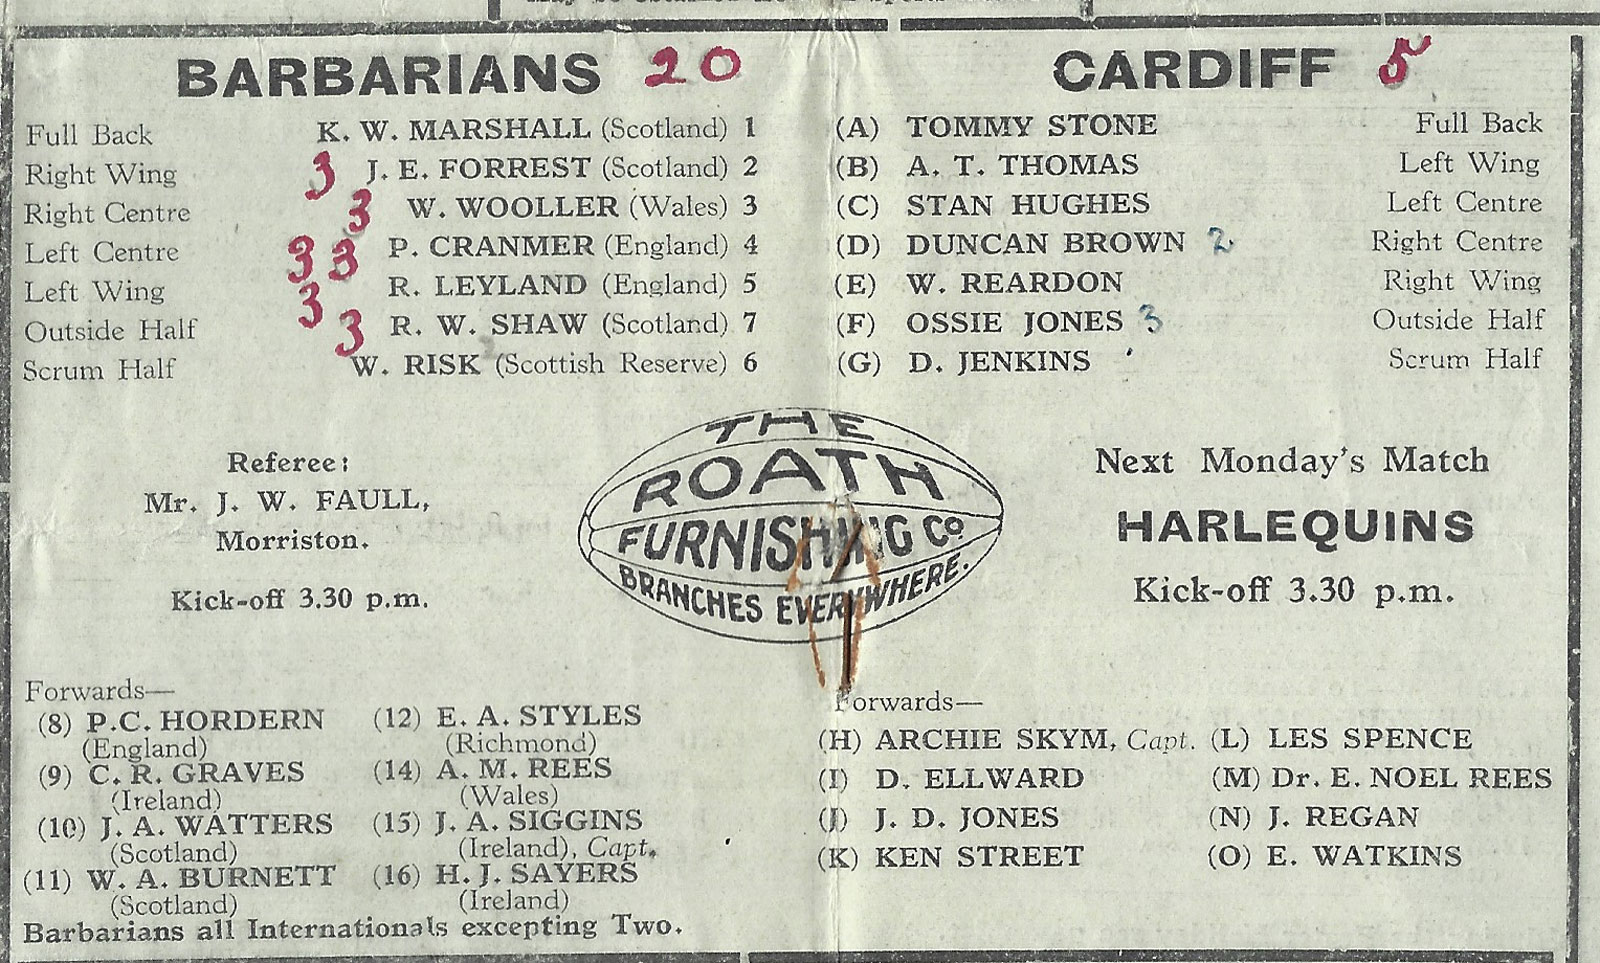 BARBARIANS 20
Full Back K. W. MARSHALL (Scotland) 1
Right Wing 3 J. E. FORREST (Scotland) 2
Right Centre 3 W. WOOLLER (Wales) 3
Left Centre 3 3 P. CRANMER (England) 4
Left Wing 3 R. LEYLAND (England) 5
Outside Half 3 R. W. SHAW (Scotland) 7
Scrum Half W. RISK (Scottish Reserve) 6
CARDIFF 5
(A) TOMMY STONE Full Back
(B) A. T. THOMAS Left Wing
(C) STAN HUGHES Left Centre
(D) DUNCAN BROWN 2 Right Centre
(E) W. REARDON Right Wing
(F) OSSIE JONES 3 Outside Half
(G) D. JENKINS Scrum Half
Referee:
Mr. J. W. FAULL,
Morriston.
Kick-off 3.30 p.m.
THE
ROATH
FURNISHING Co
BRANCHES EVERYWHERE.
Next Monday's Match
HARLEQUINS
Kick-off 3.30 p.m.
Forwards—
(8) P.C. HORDERN
(England)
(9) C. R. GRAVES
(Ireland)
(10) J. A. WATTERS
(Scotland)
(11) W. A. BURNETT
(Scotland)
(12) E. A. STYLES
(Richmond)
(14) A. M. REES
(Wales)
(15) J. A. SIGGINS
(Ireland), Capt.
(16) H. J. SAYERS
(Ireland)
Barbarians all Internationals excepting Two.
Forwards—
(H) ARCHIE SKYM, Capt.
(I) D. ELLWARD
(J) J. D. JONES
(K) KEN STREET
(L) LES SPENCE
(M) Dr. E. NOEL REES
(N) J. REGAN
(O) E. WATKINS